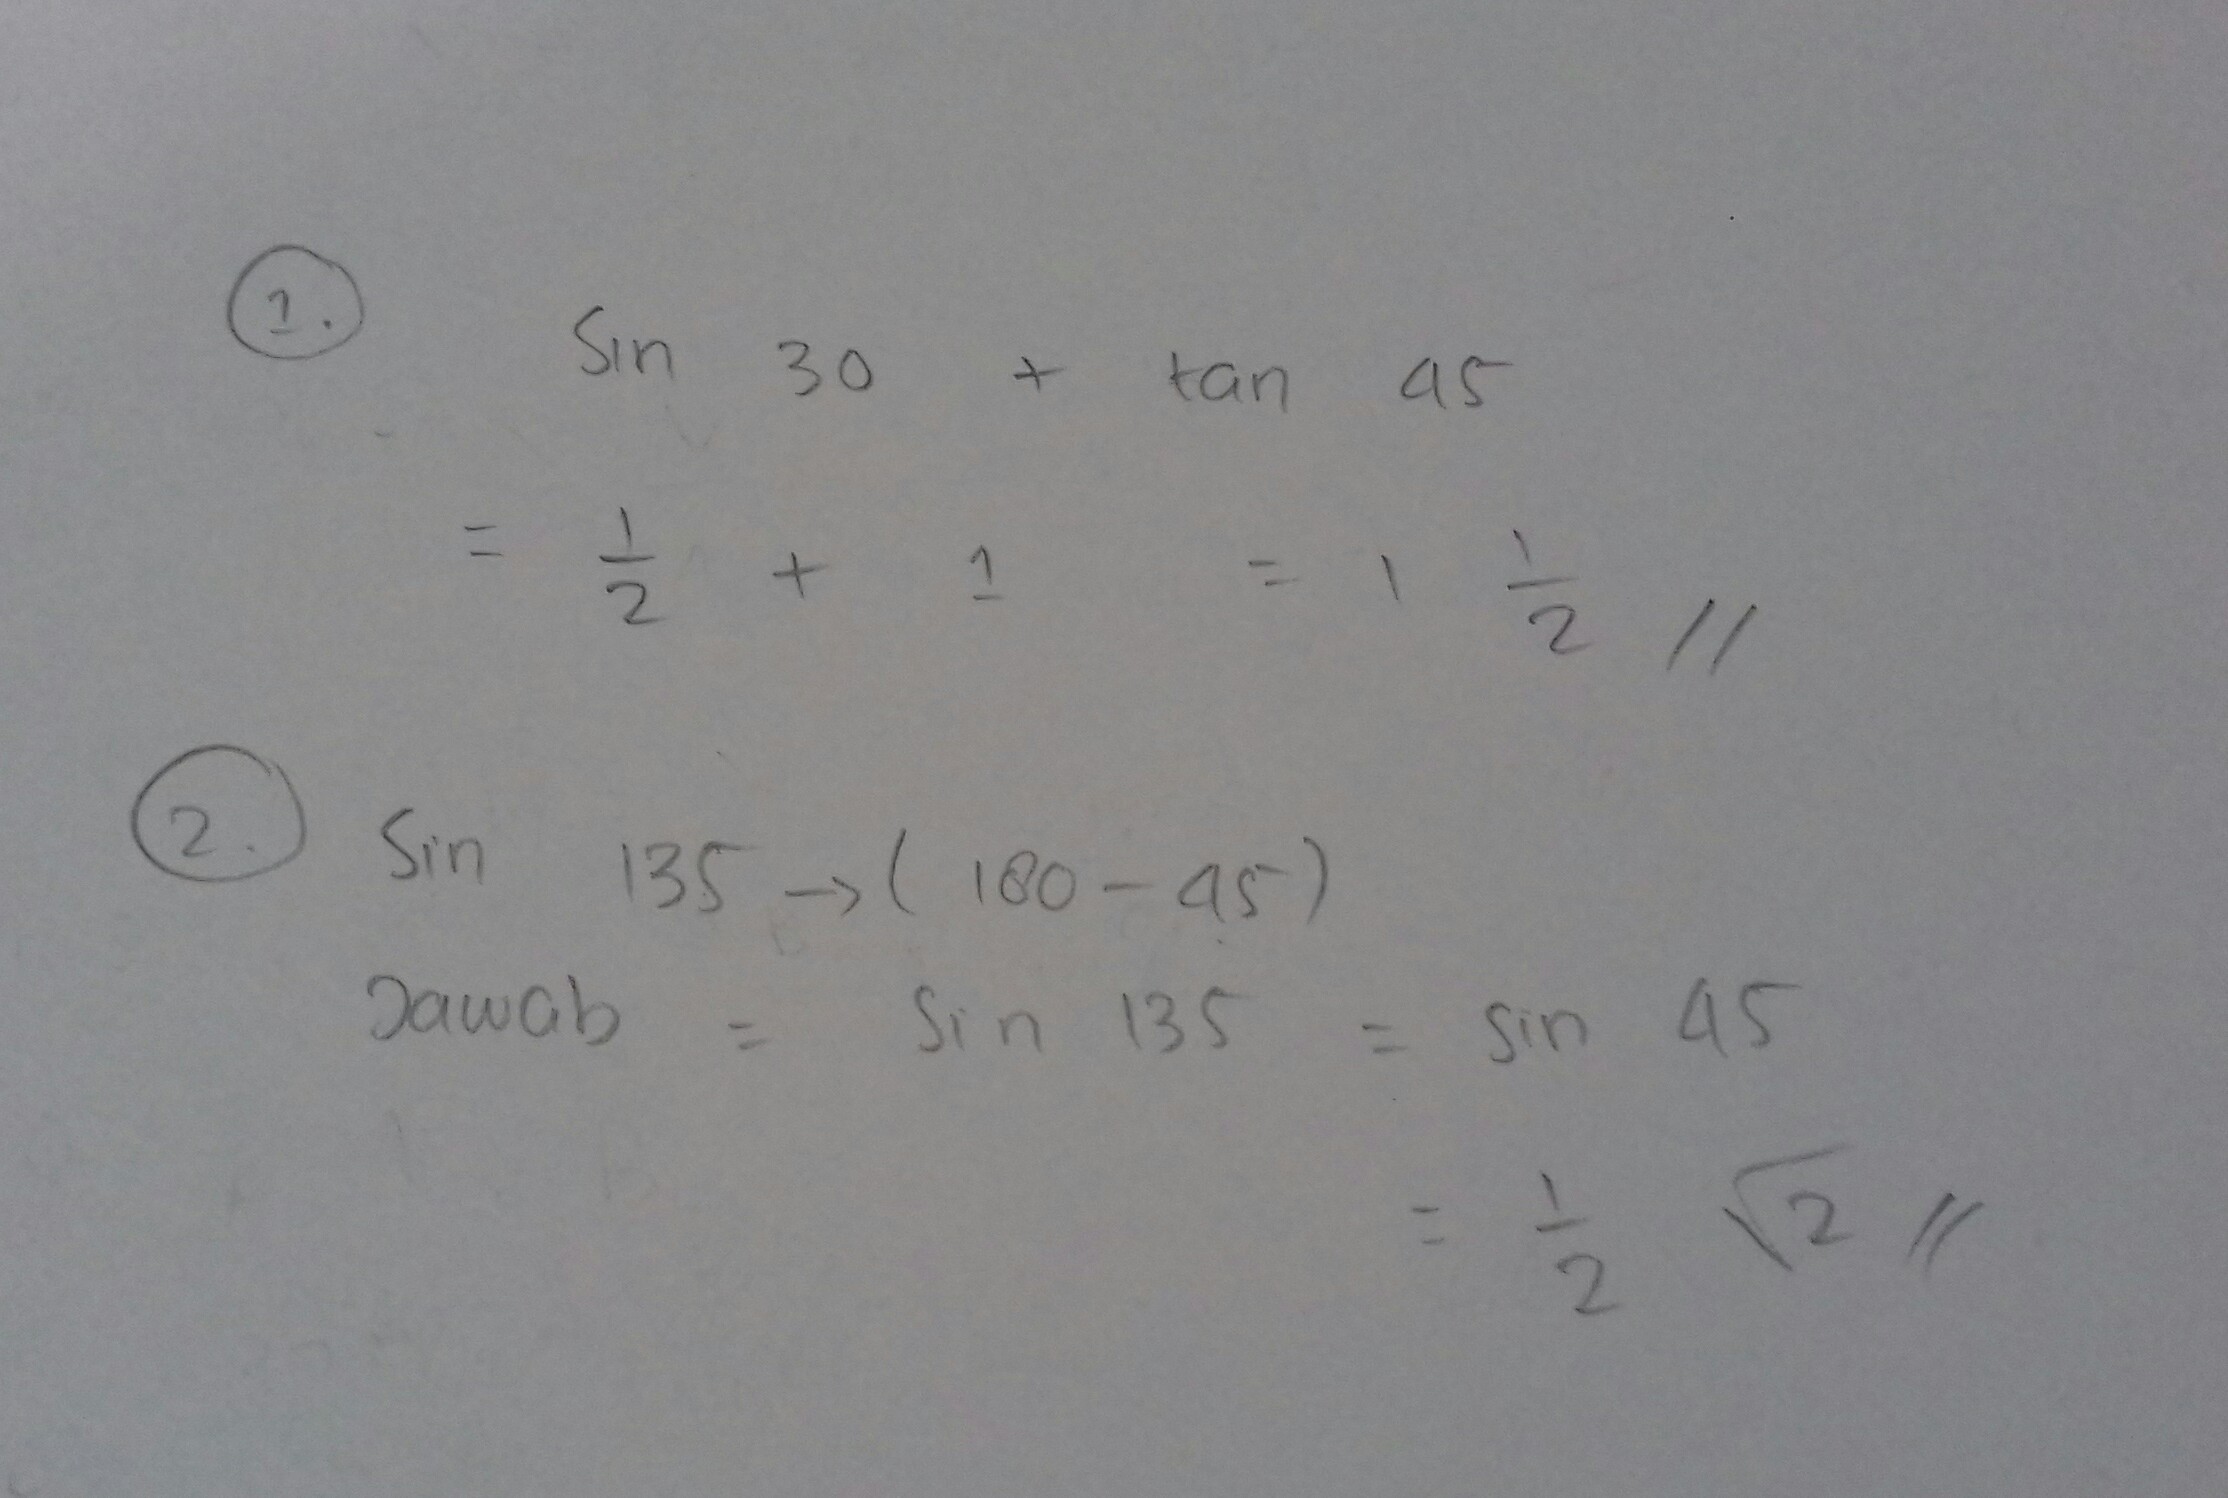 1.
Sin 30 + tan 45
= 1/2 + 1 = 1 1/2 //
2. Sin 135 → ( 180 - 45 )
Jawab = Sin 135 = sin 45
= 1/2 √2 //